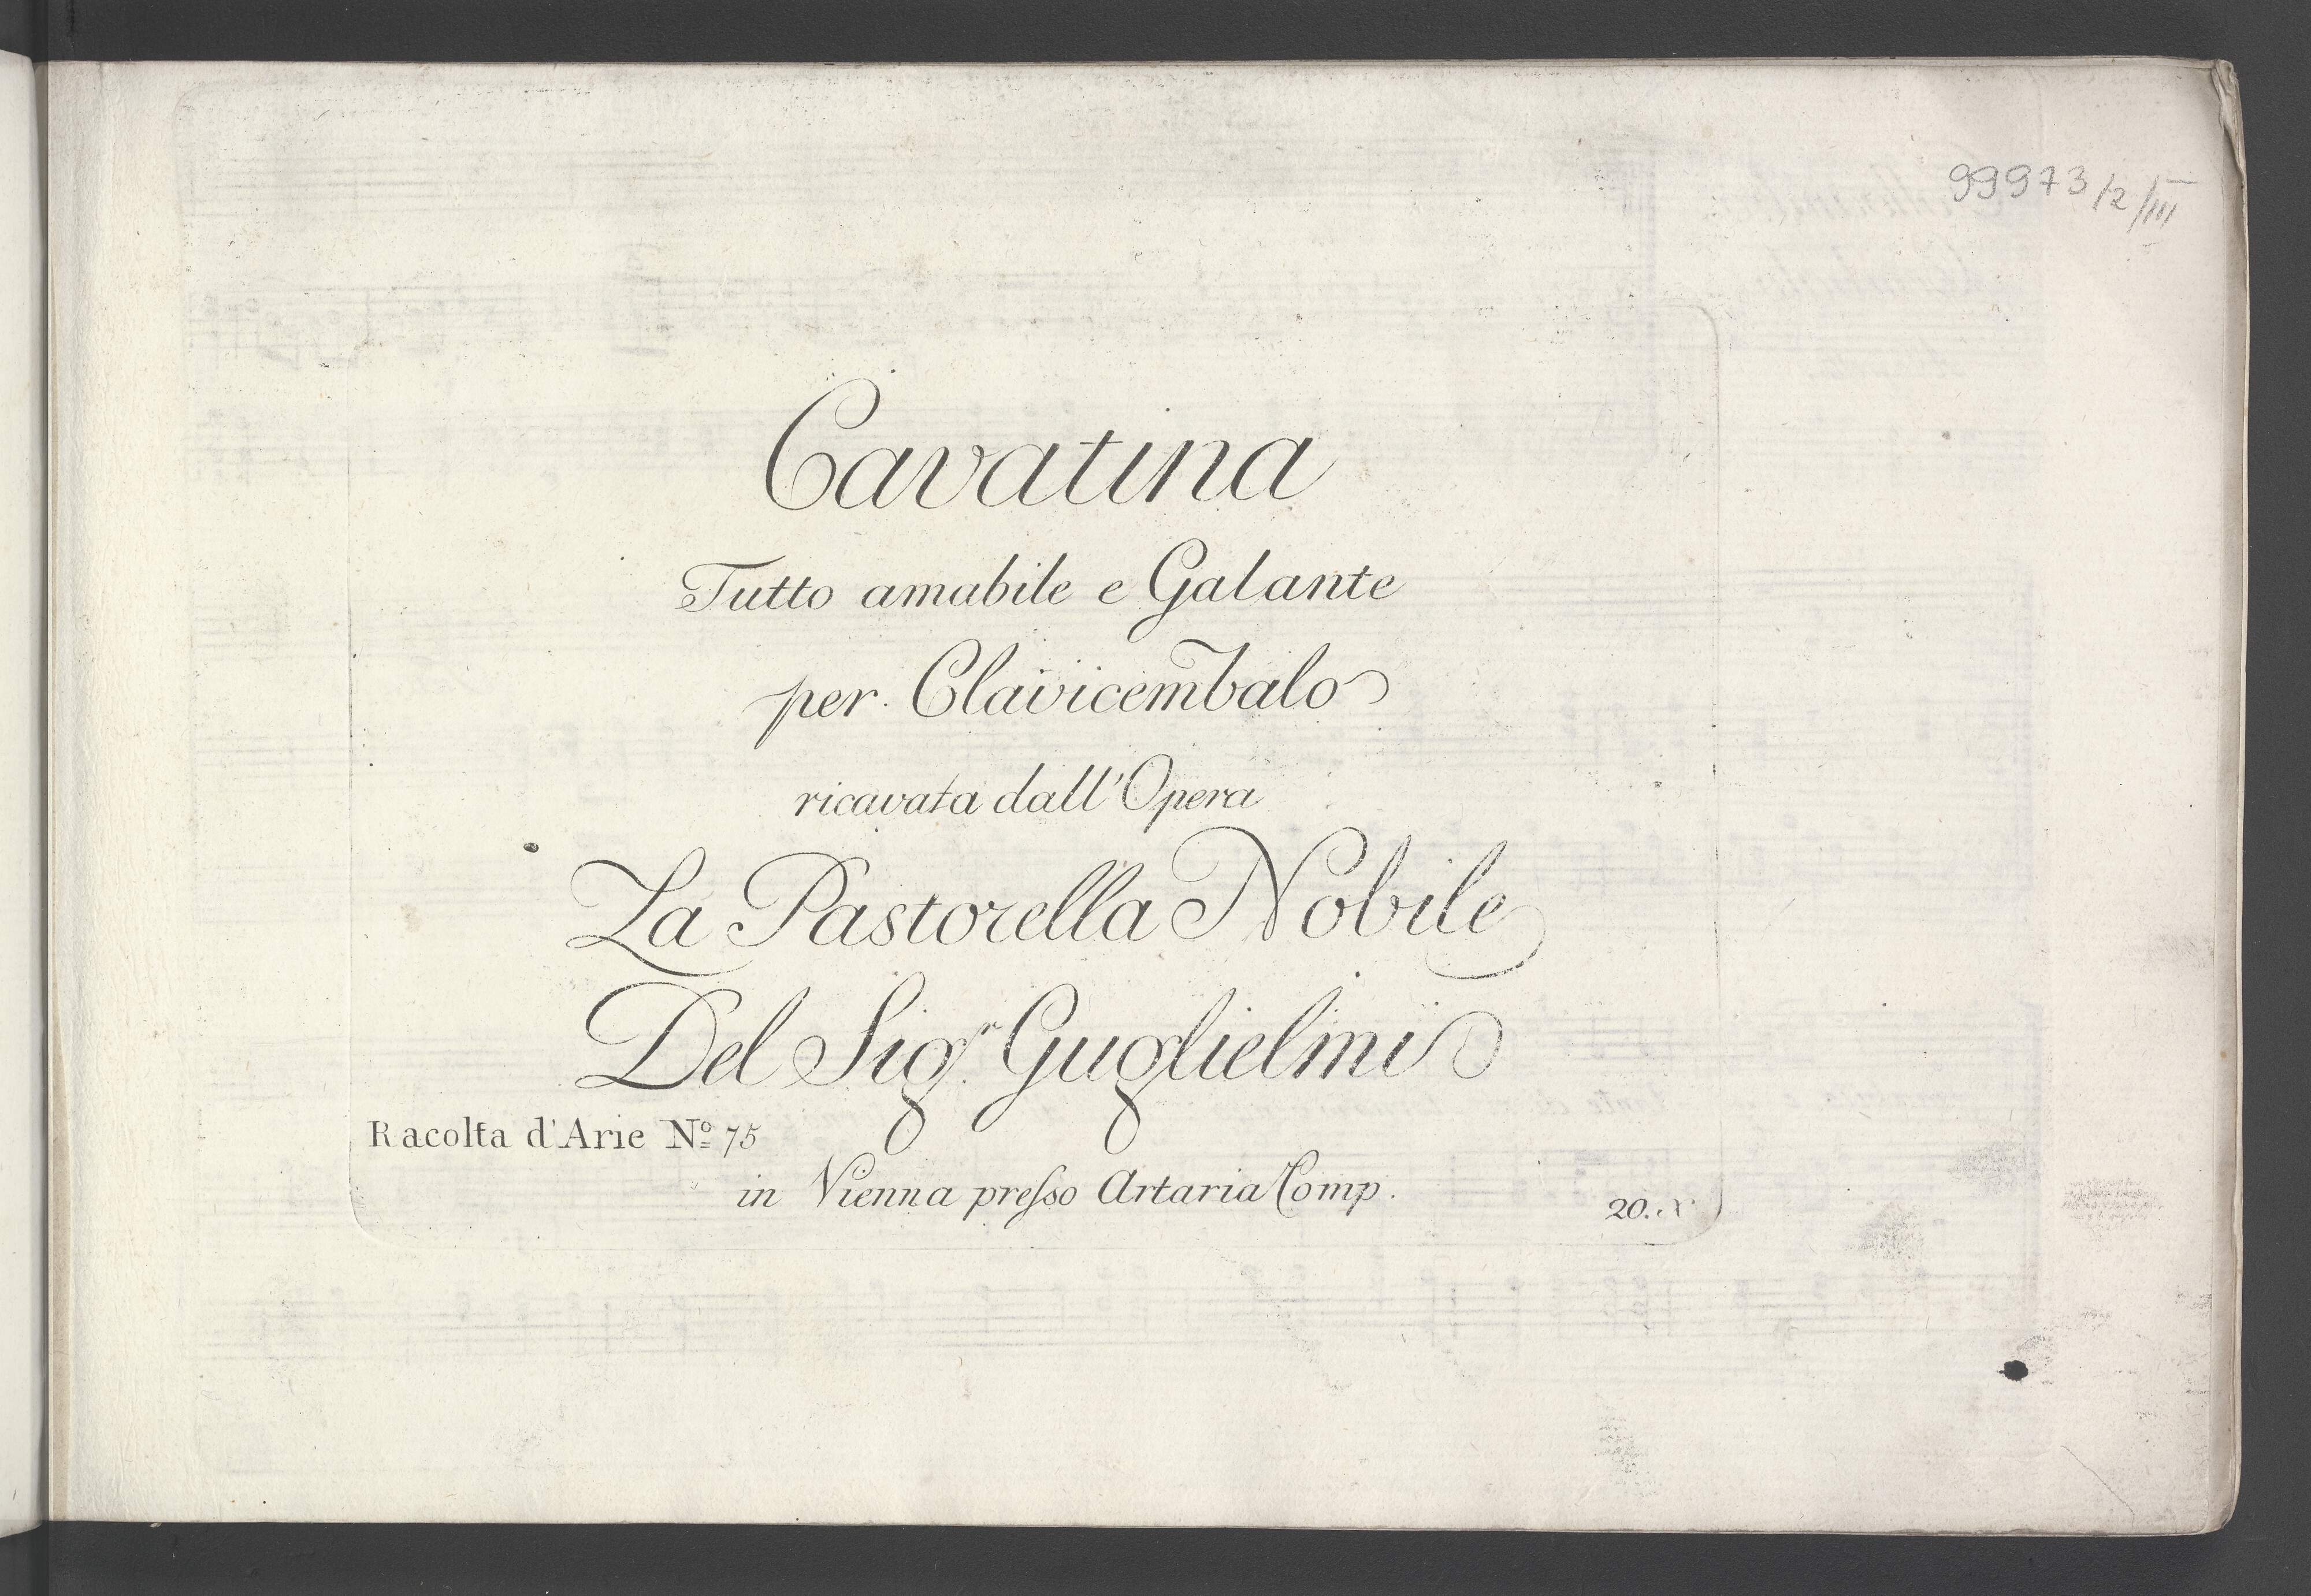 99973/2/III
Cavatina
Tutto amabile e Galante
per Clavicembalo
ricavata dall'Opera
La Pastorella Nobile
Del Sig.r Guglielmi
Racolta d'Arie No. 75
in Vienna presso Artaria Comp.
20. X